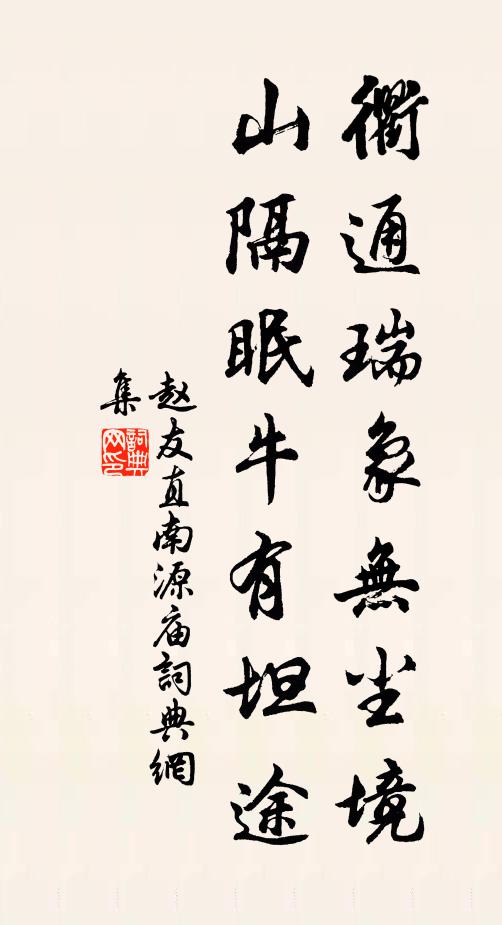 衢通瑞象無尘境
山隔眠牛有坦途
赵友直南源庙詞典網
集
詞典
网印